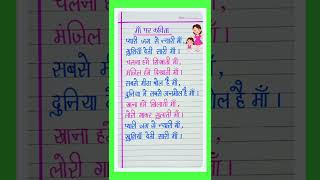 माँ पर कविता
प्यारी जग से न्यारी माँ,
खुशियाँ देती सारी माँ।
चलना हमें सिखाती माँ,
मंजिल हमें दिखाती माँ।
सबसे मीठा बोल है माँ,
दुनिया में सबसे अनमोल है माँ।
खाना हमें खिलाती माँ,
लोरी गाकर सुलाती माँ।
प्यारी जग से न्यारी माँ,
खुशियाँ देती सारी माँ।